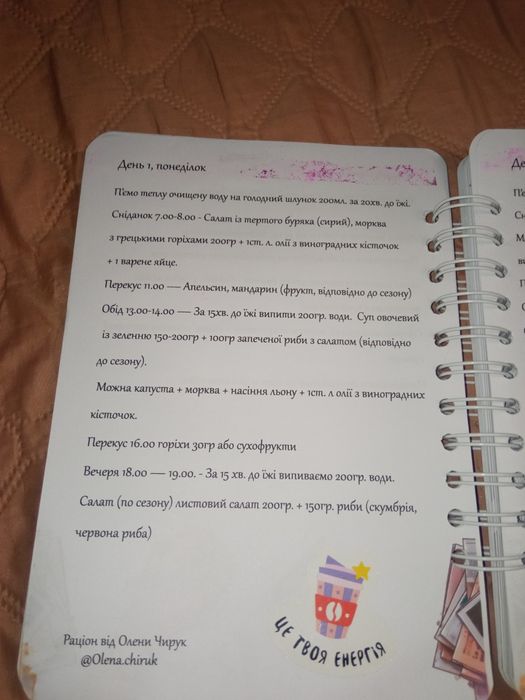 День 1, понеділок
П'ємо теплу очищену воду на голодний шлунок 200мл. за 20хв. до їжі.
Сніданок 7.00-8.00 - Салат із тертого буряка (сирий), морква
з грецькими горіхами 200гр + 1ст. л. олії з виноградних кісточок
+ 1 варене яйце.
Перекус 11.00 — Апельсин, мандарин (фрукт, відповідно до сезону)
Обід 13.00-14.00 — За 15хв. до їжі випити 200гр. води. Суп овочевий
із зеленню 150-200гр + 100гр запеченої риби з салатом (відповідно
до сезону).
Можна капуста + морква + насіння льону + 1ст. л олії з виноградних
кісточок.
Перекус 16.00 горіхи 30гр або сухофрукти
Вечеря 18.00 — 19.00. - За 15 хв. до їжі випиваємо 200гр. води.
Салат (по сезону) листовий салат 200гр. + 150гр. риби (скумбрія,
червона риба)
ЦЕ ТВОЯ ЕНЕРГІЯ
Раціон від Олени Чирук
@Olena.chiruk